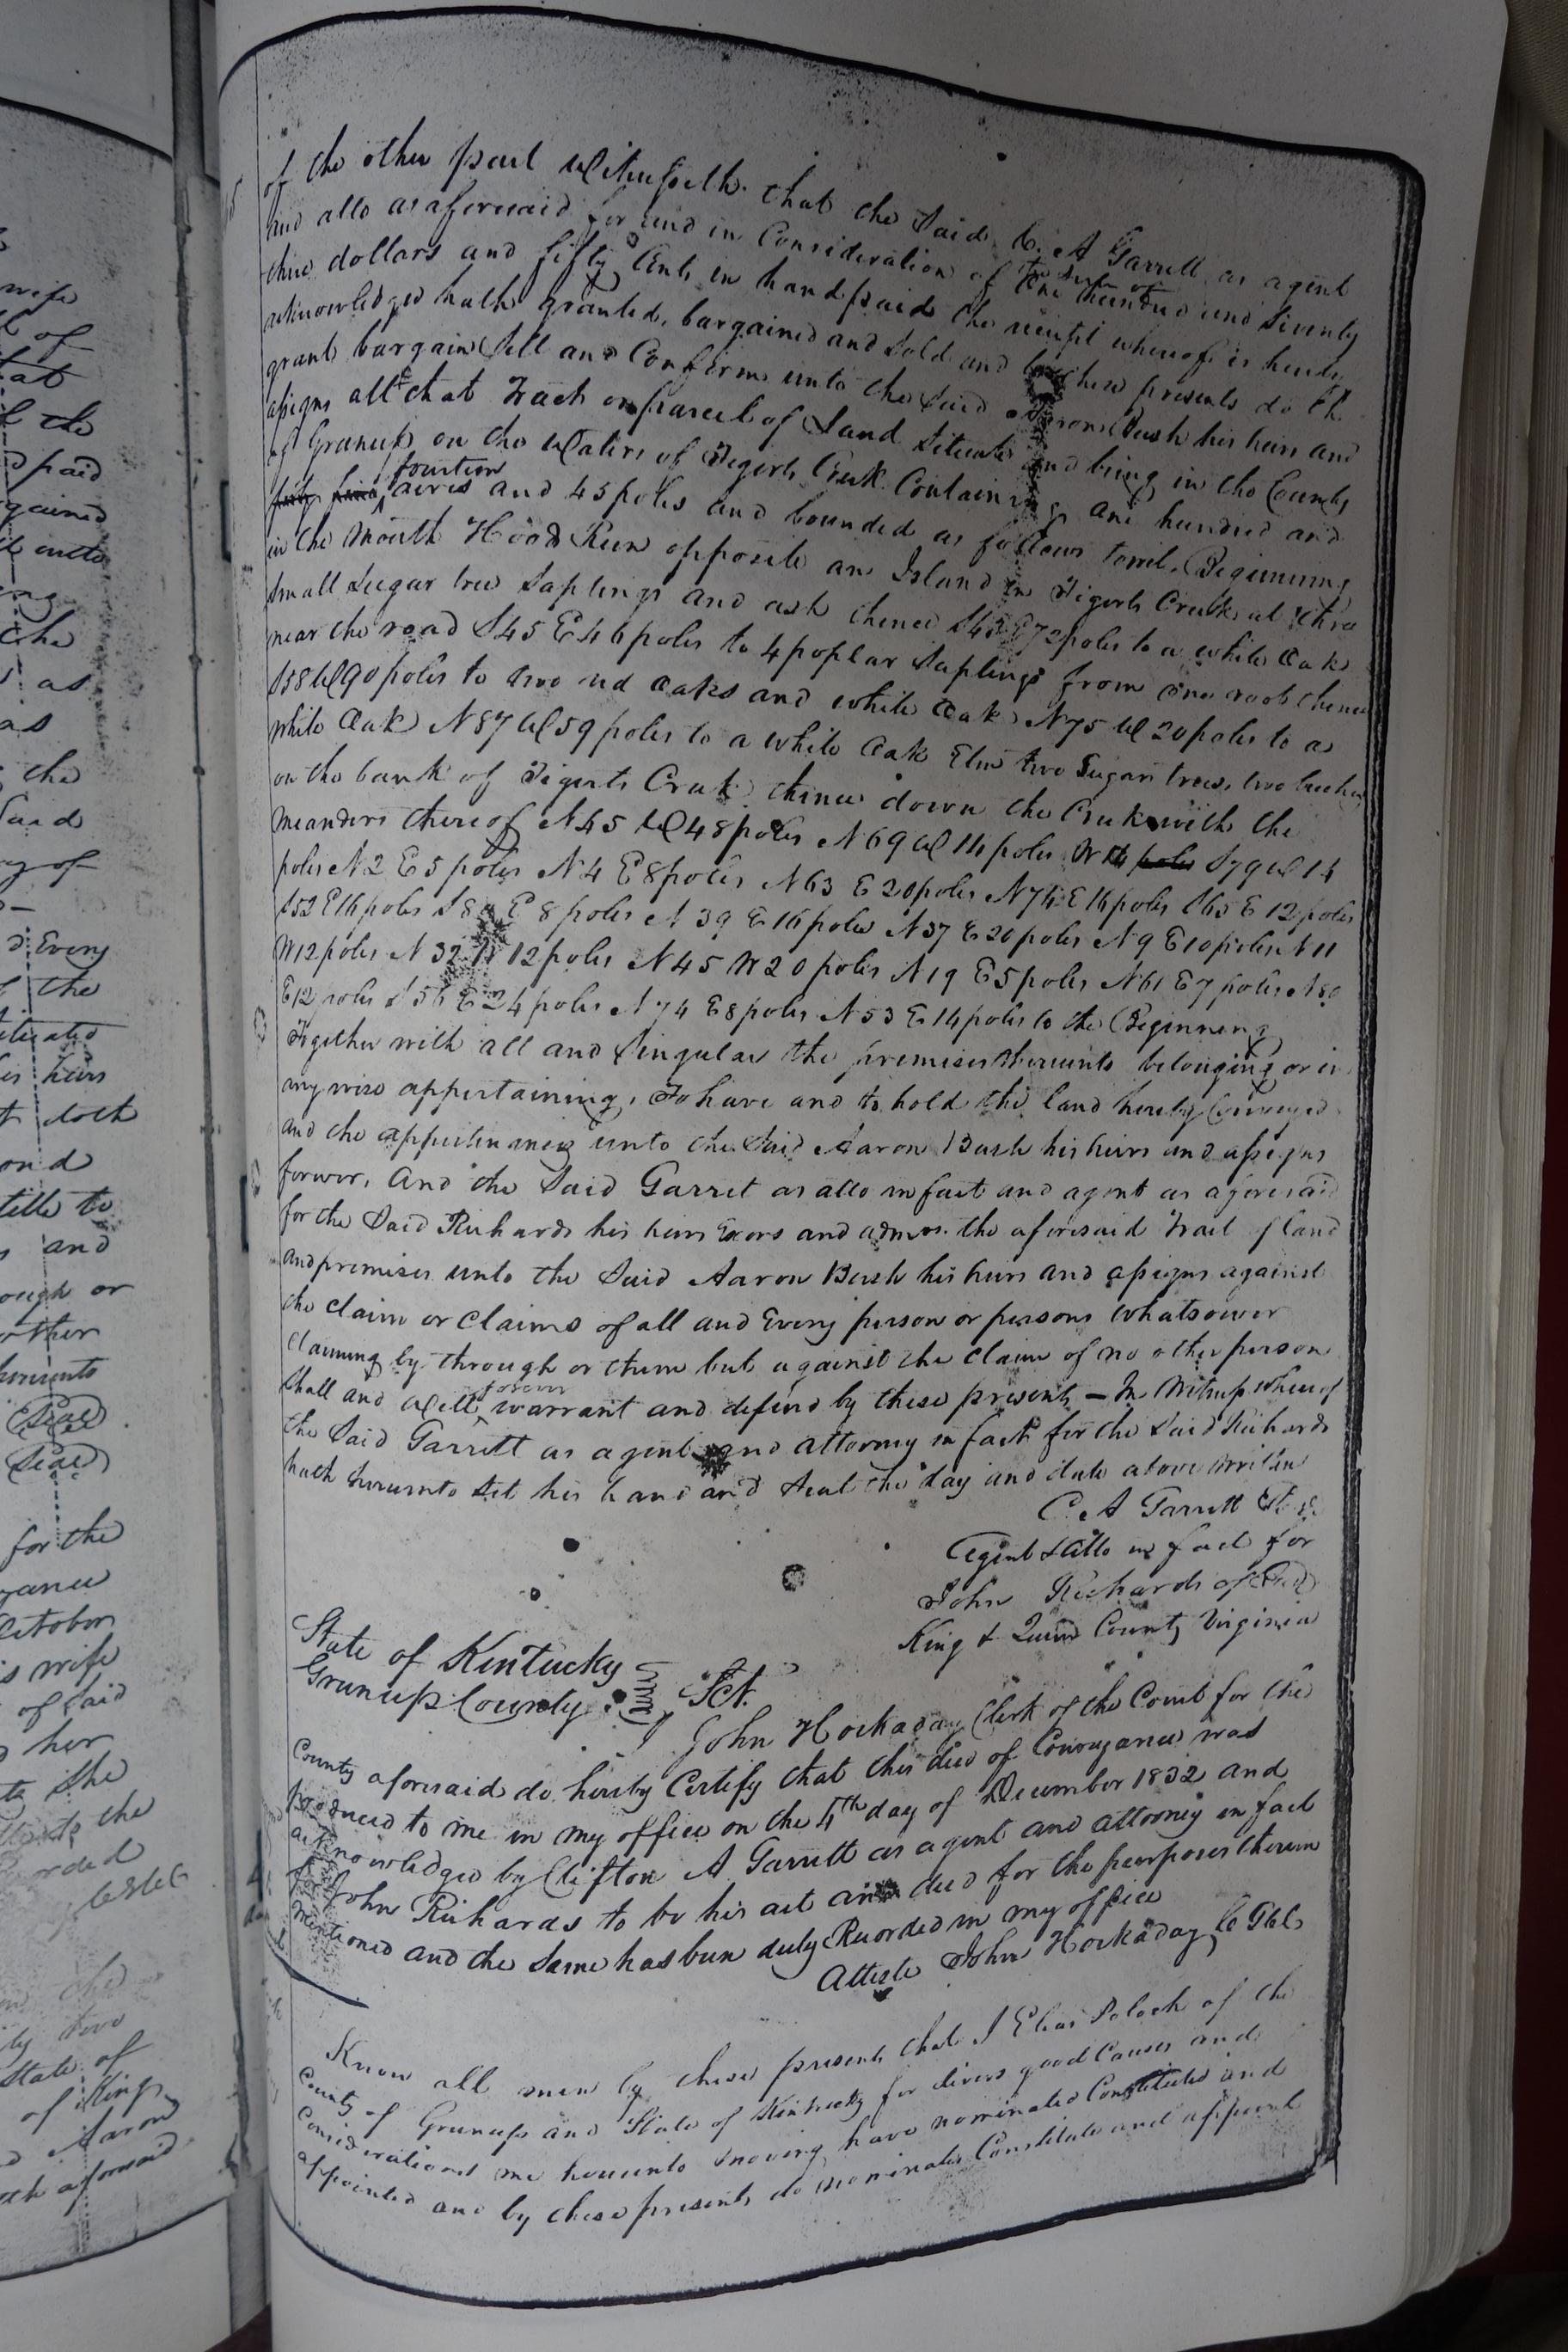 of the other part Witnesseth that the Said C. A Garrett as agent
and atto as aforesaid for and in Consideration of the Sum of One hundred and Seventy
three dollars and fifty Cents in hand paid the receipt whereof is hereby
acknowledged hath granted, bargained and Sold and by these presents do th
grant bargain Sell and Confirm unto the Said Aaron Bush his heirs and
assigns all that Tract or parcel of Land Situate and being in the County
of Greenup on the Waters of Tigerts Creek Containing one hundred and
fourteen acres and 45 poles and bounded as follows towit. Beginning
in the mouth Hood Run opposite an Island in Tigerts Creek at three
small Sugar tree Saplings and ash thence S45 E72 poles to a white Oak
near the road S45 E46 poles to 4 poplar Saplings from one root thence
S58 W90 poles to two red Oaks and white Oak N75 W 20 poles to a
white Oak N87 W59 poles to a white Oak Elm two Sugar trees, two beeches
on the bank of Tigerts Creek thence down the Creek with the
meanders thereof N45 W48 poles N69 W14 poles W14 poles S79 W14
poles N2 E5 poles N4 E8 poles N63 E20 poles N74 E16 poles S65 E12 poles
S52 E16 poles S8 E8 poles N39 E16 poles N37 E20 poles N9 E10 poles N11
W12 poles N32 W12 poles N45 W20 poles N19 E5 poles N61 E7 poles N80
E12 poles S56 E24 poles N74 E8 poles N53 E14 poles to the Beginning
Together with all and Singular the premises thereunto belonging or in
any wise appertaining, To have and to hold the land hereby Conveyed
and the appertinances unto the Said Aaron Bush his heirs and assigns
forever, And the Said Garret as atto in fact and agent as aforesaid
for the Said Richards his heirs Exors and admrs. the aforesaid Tract of land
and premises unto the Said Aaron Bush his heirs and assigns against
the claim or claims of all and Every person or persons whatsoever
claiming by through or them but against the claim of no other person
shall and Will forever warrant and defend by these presents — In Witness whereof
the Said Garrett as agent and attorney in fact for the Said Richards
hath hereunto Set his hand and Seal the day and date above written
C. A Garrett
Agent & atto in fact for
John Richards of
King & Queen County Virginia
State of Kentucky
Greenup County Sct.
I John Hockaday Clerk of the Court for the
County aforesaid do hereby Certify that this deed of Conveyance was
produced to me in my office on the 4th day of December 1832 and
acknowledged by Clifton A. Garrett as agent and attorney in fact
for John Richards to be his act and deed for the purposes therein
mentioned and the Same has been duly Recorded in my office
Atteste John Hockaday
Know all men by these presents that I Elias of the
County of Greenup and State of Kentucky for divers good Causes and
Considerations me hereunto moving have nominated Constituted and
appointed and by these presents do nominate Constitute and appoint
wife
of
that
the
paid
the
as
as
the
Said
of
Every
the
heirs
doth
and
title to
and
or
other
Seal
Seal
for the
October
wife
of Said
her
the
to the
two
State of
of King
Aaron
aforesaid